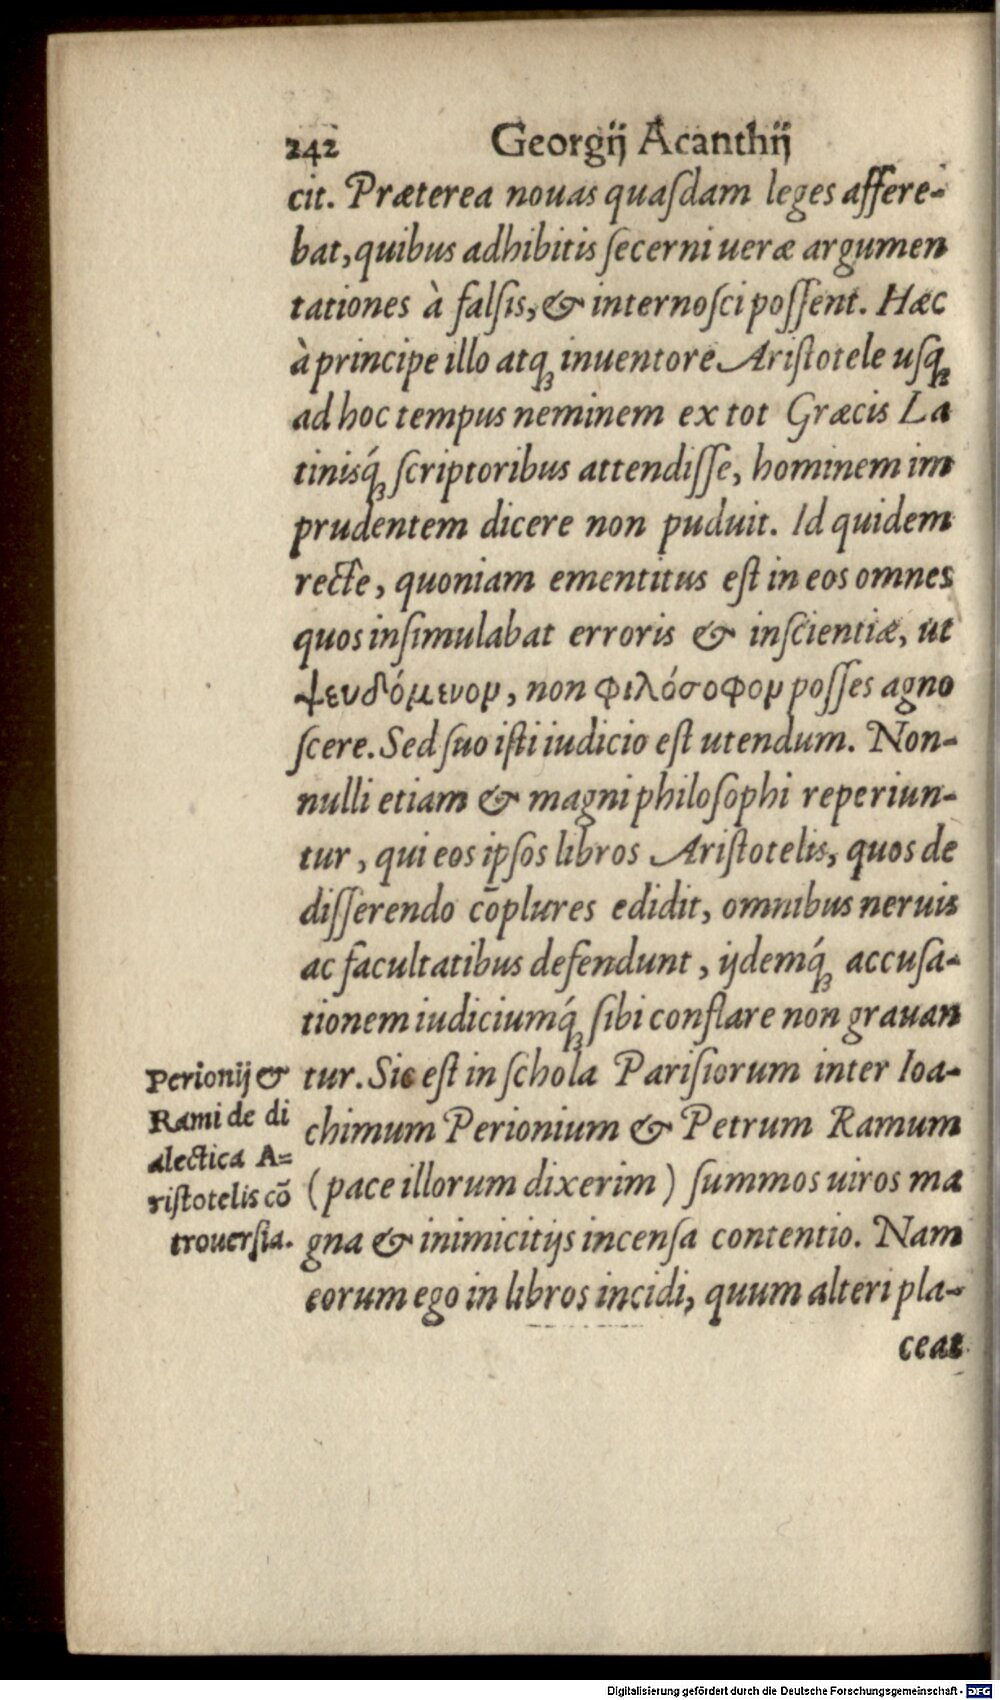 242 Georgij Acanthij
cit. Præterea nouas quaſdam leges affere-
bat, quibus adhibitis ſecerni ueræ argumen
tationes à falſis, & internoſci poſſent. Hæc
à principe illo atq́ inuentore Ariſtotele uſq́
ad hoc tempus neminem ex tot Græcis La
tinisq́ ſcriptoribus attendiſſe, hominem im
prudentem dicere non puduit. Id quidem
recte, quoniam ementitus eſt in eos omnes
quos inſimulabat erroris & inſcientiæ, ut
ψευδόμενον, non φιλόσοφον poſſes agno
ſcere. Sed ſuo iſti iudicio eſt utendum. Non-
nulli etiam & magni philoſophi reperiun-
tur, qui eos ipſos libros Ariſtotelis, quos de
diſſerendo cōplures edidit, omnibus neruis
ac facultatibus defendunt, ijdemq́ accuſa-
tionem iudiciumq́ ſibi conflare non grauan
tur. Sic eſt in ſchola Pariſiorum inter Ioa-
chimum Perionium & Petrum Ramum
(pace illorum dixerim) ſummos uiros ma
gna & inimicitijs incenſa contentio. Nam
eorum ego in libros incidi, quum alteri pla-
ceat
Perionij &
Rami de di
alectica A=
riſtotelis cō
trouerſia.
Digitalisierung gefördert durch die Deutsche Forschungsgemeinschaft - DFG